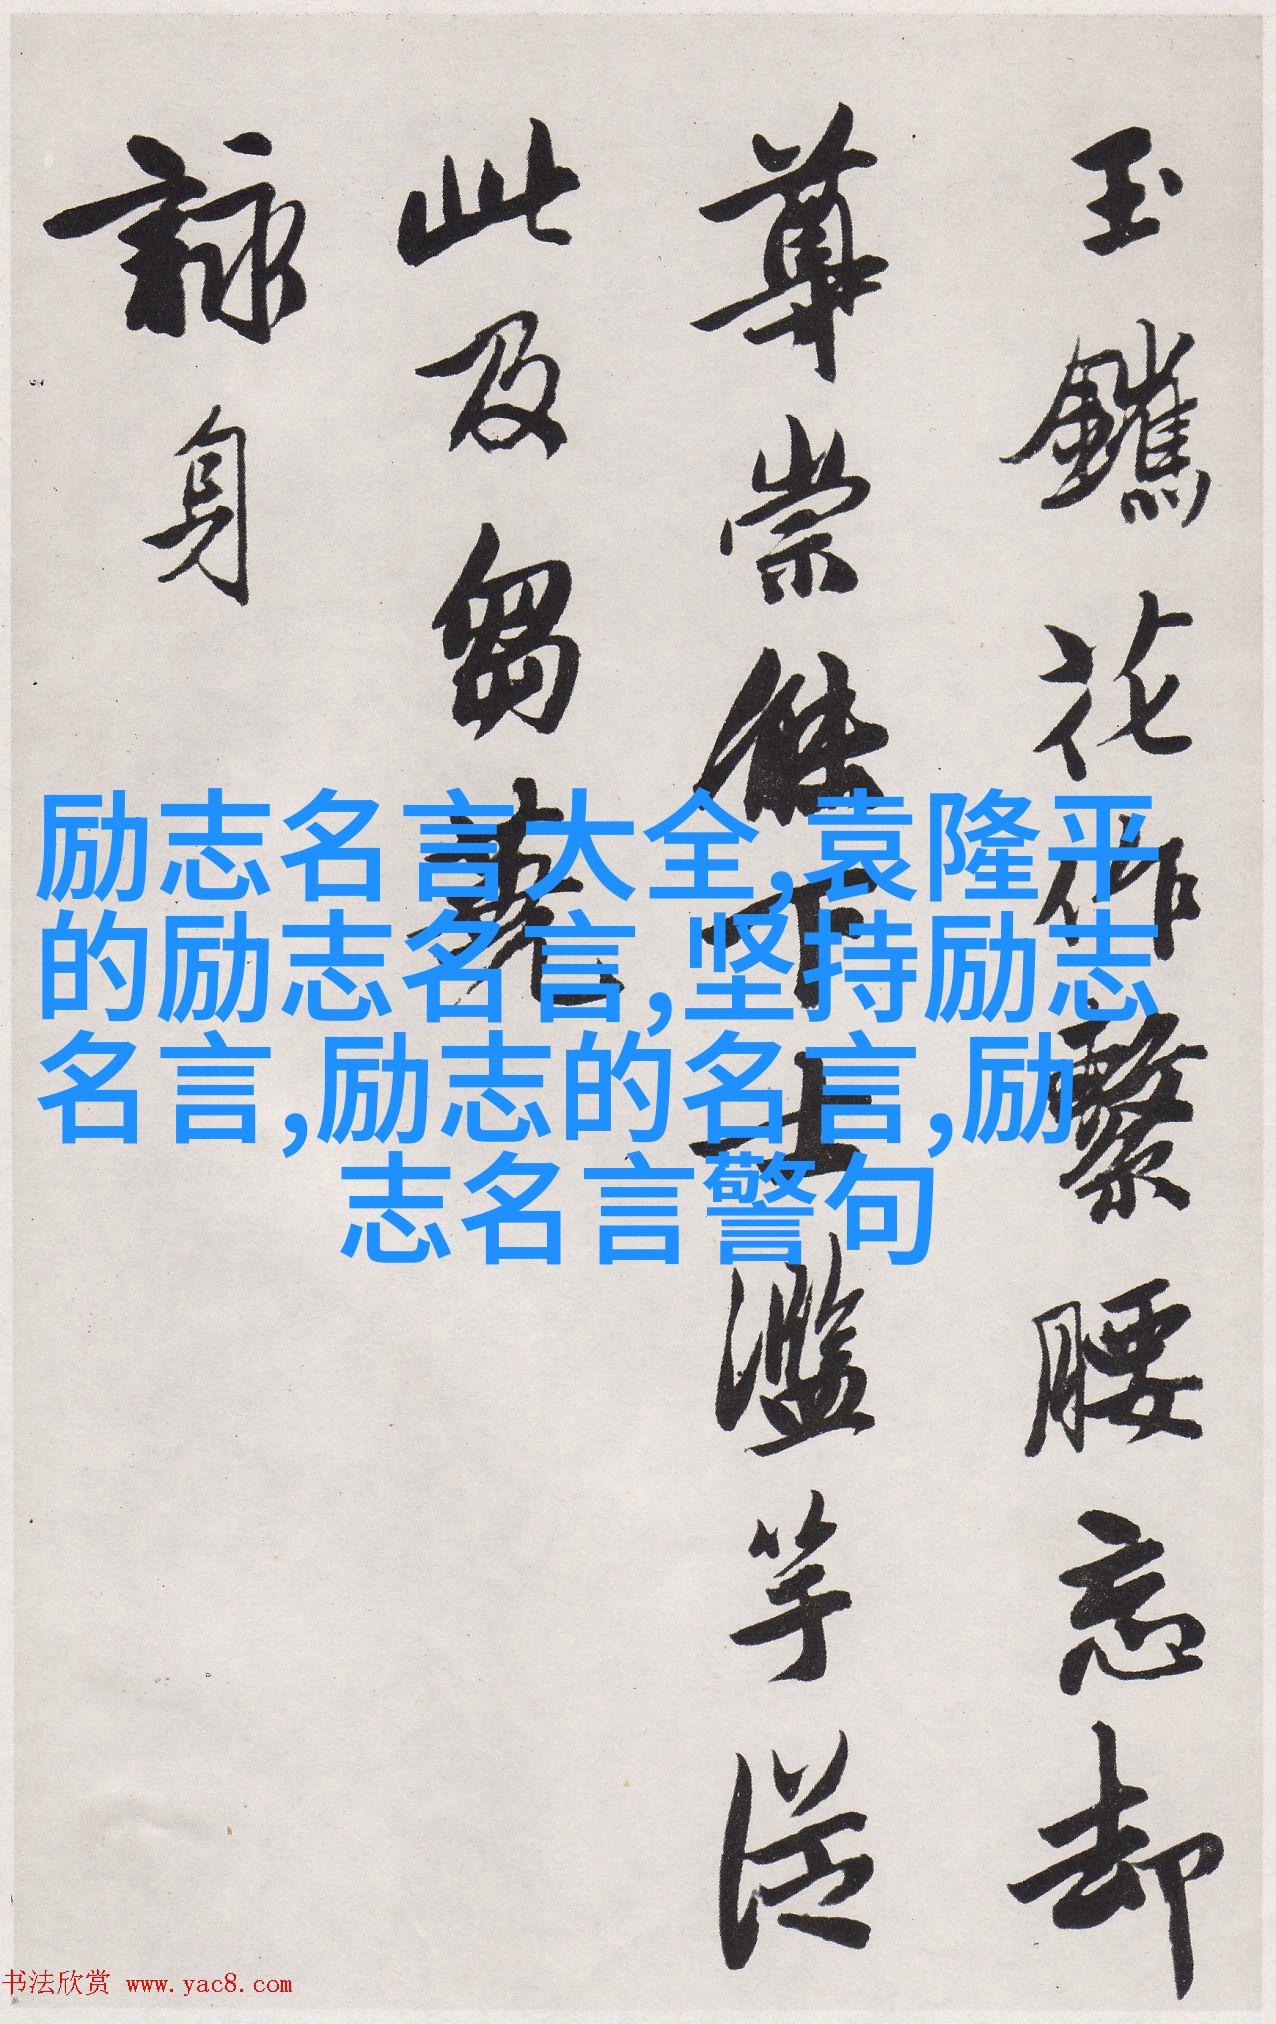 玉鑊花作繫腰忘却
尊崇條下士濫竽從
此及芻蕘
詠身
励志名言大全,袁隆平
的励志名言,坚持励志
名言,励志的名言,励
志名言警句
书法欣赏 www.yac8.com